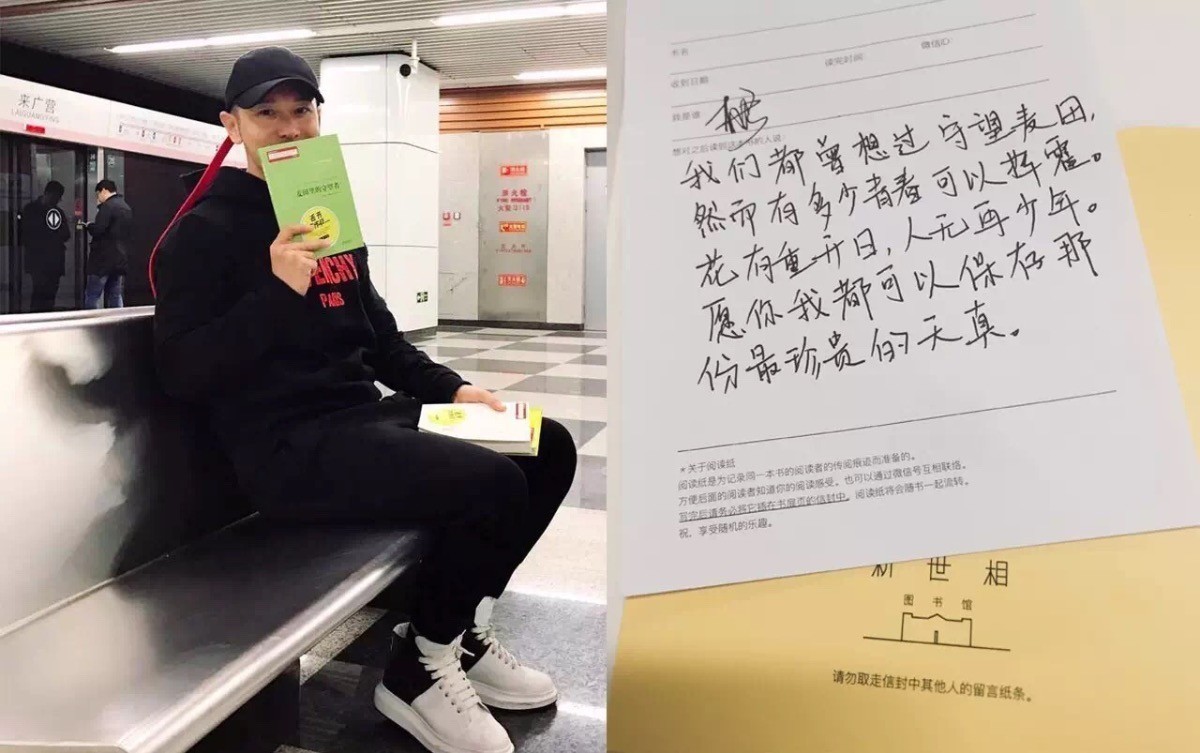 来广营
LAIGUANGYING
麦田里的守望者
PARIS
消火栓
灭火箱
书名
微信ID:
读完时间:
收到日期
我是谁
想对之后读到这本书的人说:
我们都曾想过守望麦田，
然而有多少青春可以挥霍。
花有重开日，人无再少年。
愿你我都可以保存那
份最珍贵的天真。
*关于阅读纸
阅读纸是为记录同一本书的阅读者的传阅痕迹而准备的。
方便后面的阅读者知道你的阅读感受，也可以通过微信号互相联络。
写完后请务必将它插在书扉页的信封中。阅读纸将会随书一起流转。
祝，享受随机的乐趣。
新世相
图书馆
请勿取走信封中其他人的留言纸条。